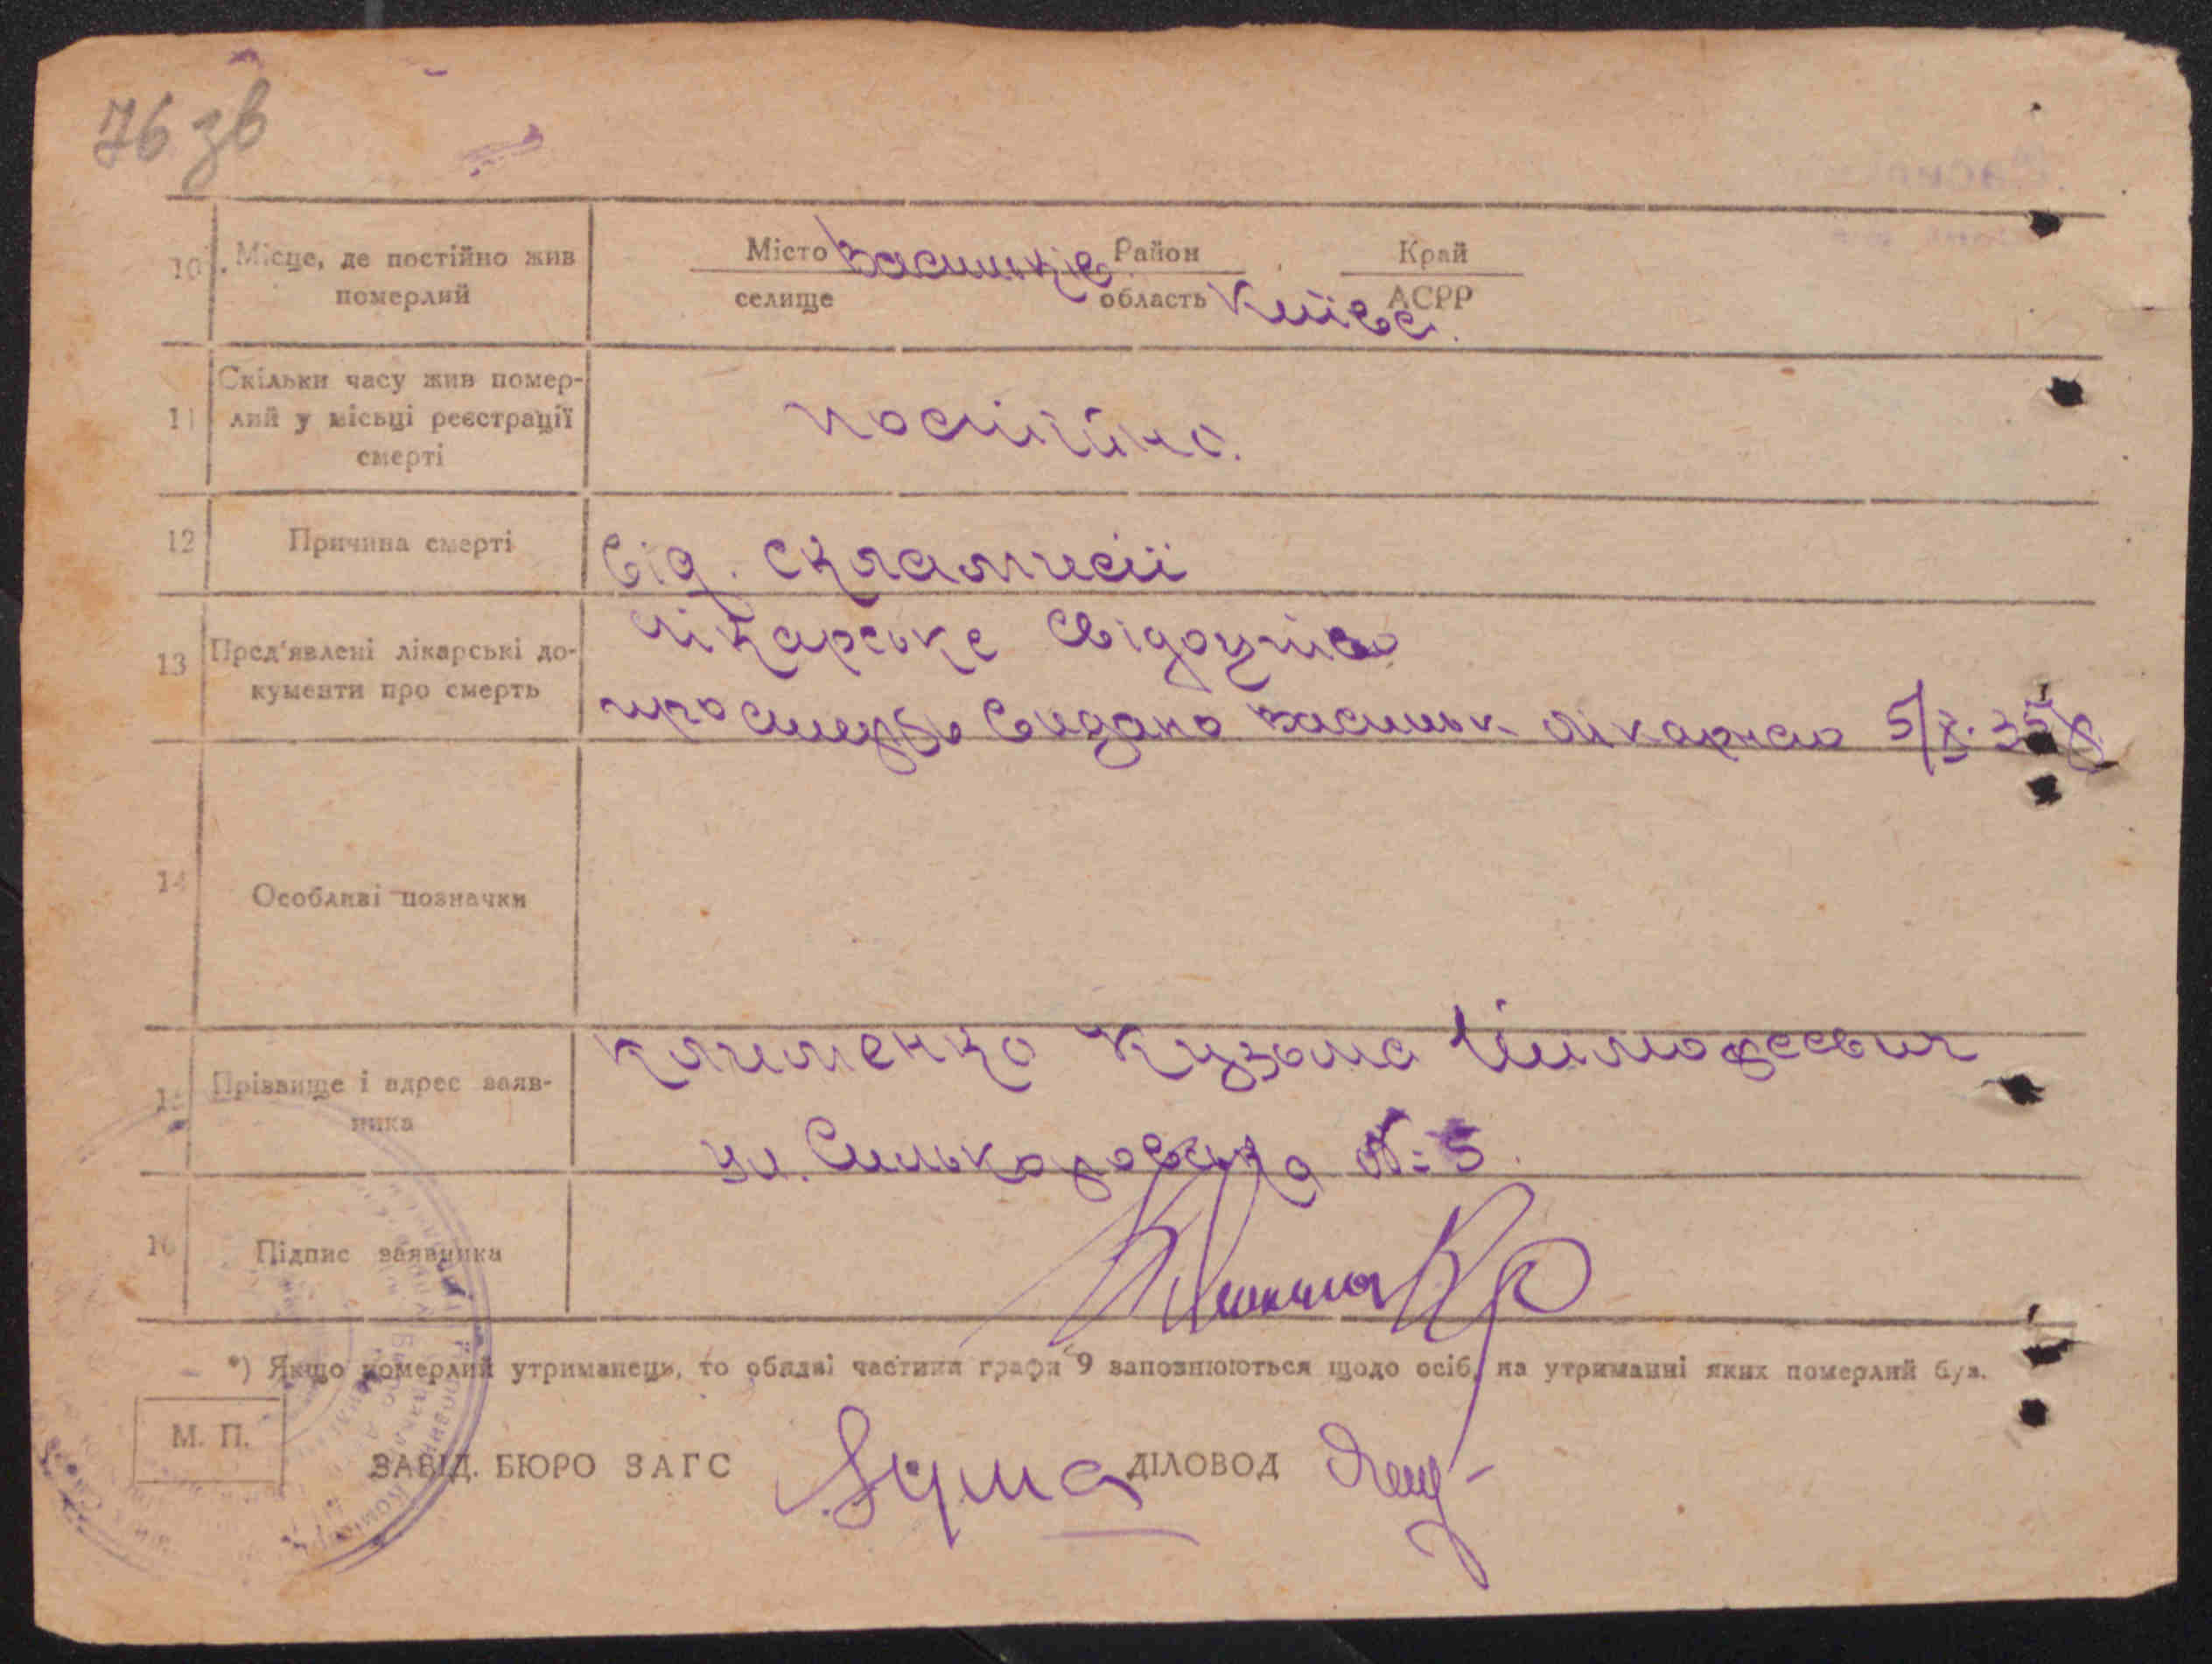 76 зв
10. Місце, де постійно жив померлий
Місто Васильків Район Край
селище область Київс. АСРР
11 Скільки часу жив помер-
лий у місьці реєстрації
смерті
постійно.
12 Причина смерті
від. еклампсії
13 Пред'явлені лікарські до-
кументи про смерть
лікарське свідоцтво
про смерть видано васильк лікарнею 5/X.35 р
14 Особливі позначки
15 Прізвище і адрес заяв-
ника
Клименко Кузьма Тимофеевич
ул. Сількоровська № 5.
16 Підпис заявника
*) Якщо померлий утриманець, то обидві частини графи 9 заповнюються щодо осіб, на утриманні яких померлий був.
М. П.
ЗАВІД. БЮРО ЗАГС ДІЛОВОД